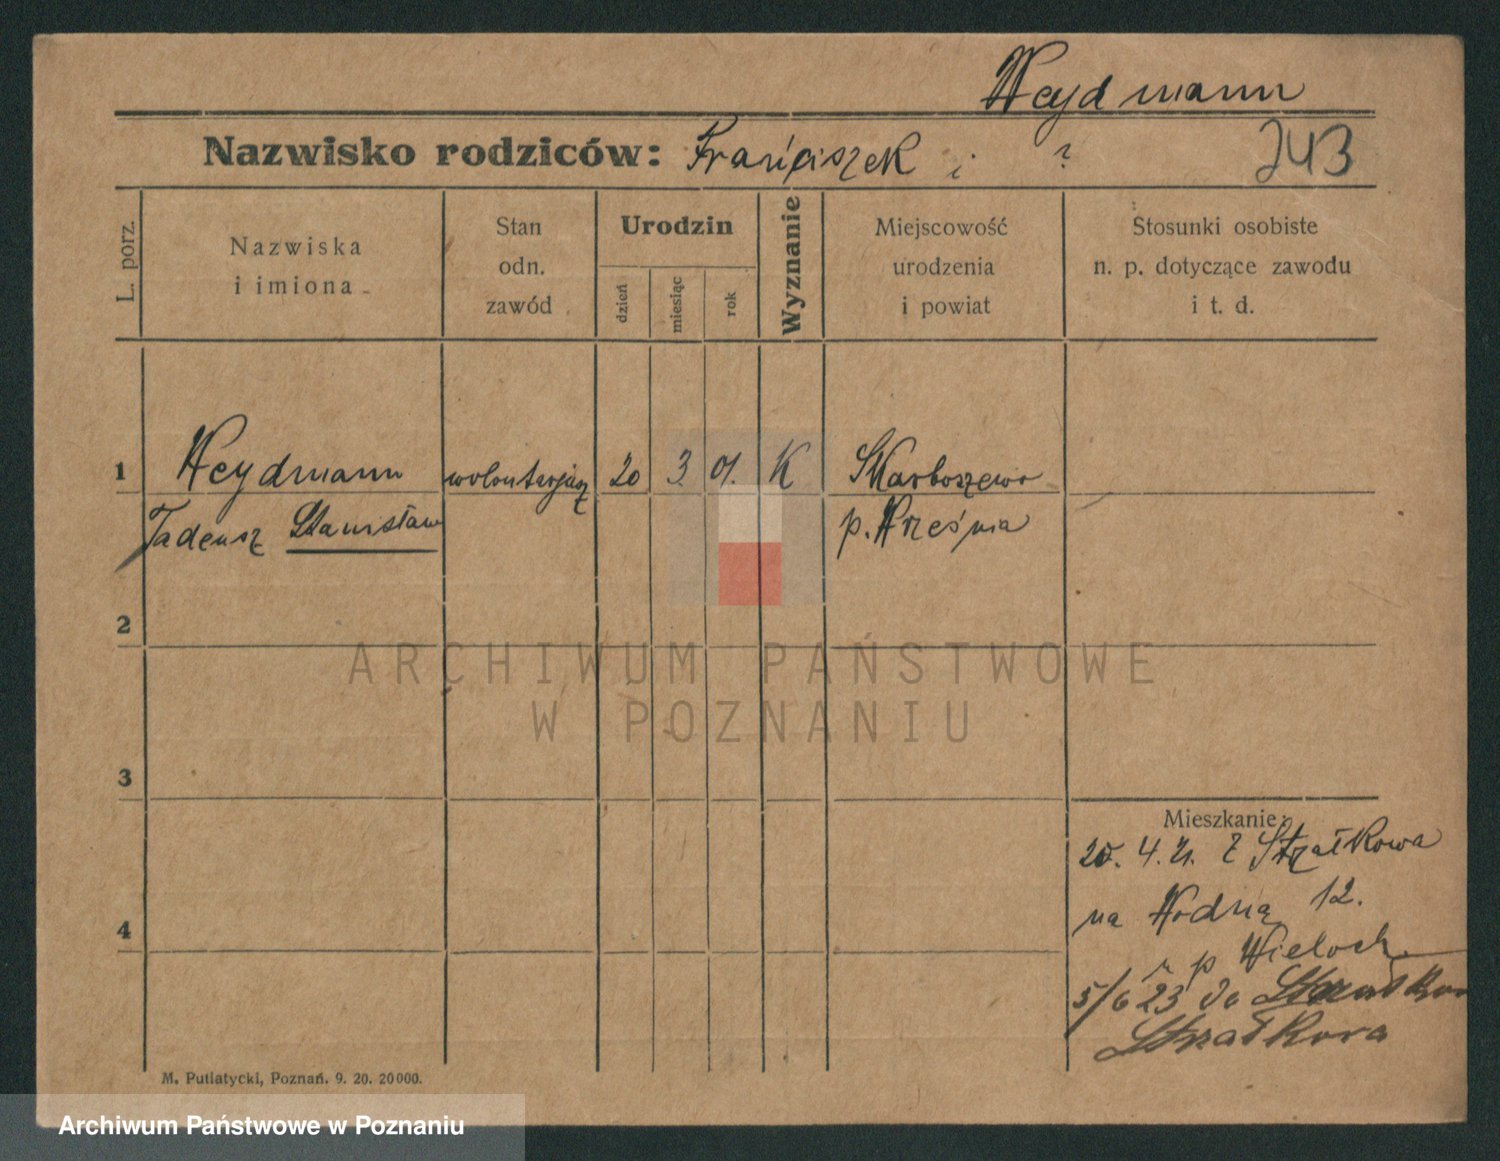 Weydmann
Nazwisko rodziców: Franciszek i ?
243
L. porz.
Nazwiska
i imiona
Stan
odn.
zawód
Urodzin
dzień
miesiąc
rok
Wyznanie
Miejscowość
urodzenia
i powiat
Stosunki osobiste
n. p. dotyczące zawodu
i t. d.
1 Weydmann 20 3. 01. K Skarboszewo
Tadeusz Stanisław p. Września
2
ARCHIWUM PAŃSTWOWE
W POZNANIU
3
Mieszkanie:
20. 4. 21. z Strzałkowa
na Wodną 12.
4
p Wieloch
5/6 23 do
Strzałkowa
M. Putiatycki, Poznań. 9. 20. 20000.
Archiwum Państwowe w Poznaniu